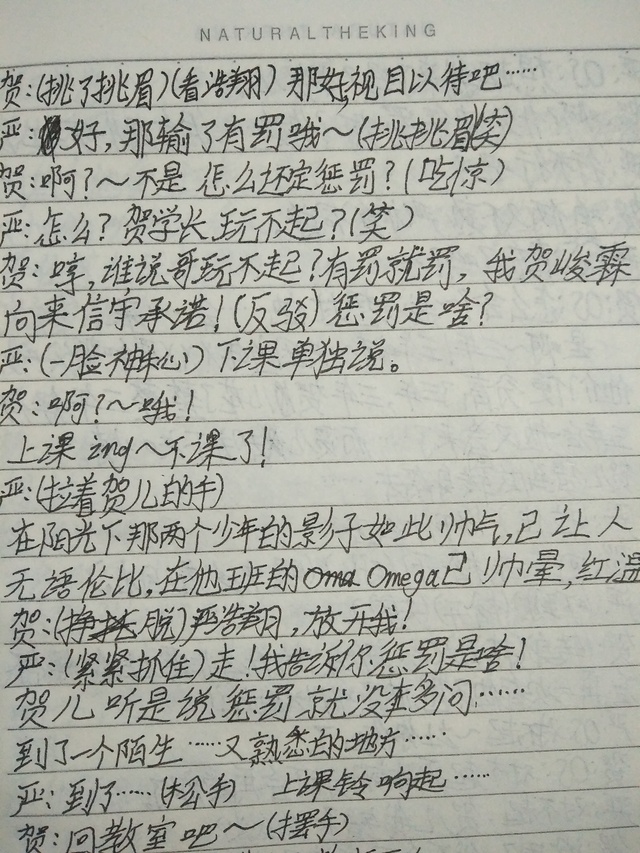 NATURALTHEKING
贺:(挑了挑眉)(看浩翔) 那好,视目以待吧……
严:好,那输了有罚哦~(挑挑眉笑)
贺:啊?~不是 怎么还定惩罚?(吃惊)
严:怎么?贺学长玩不起?(笑)
贺:哼,谁说哥玩不起?有罚就罚,我贺峻霖
向来信守承诺!(反驳)惩罚是啥?
严:(一脸神秘)下课单独说。
贺:啊?~哦!
上课ing~下课了!
严:(拉着贺儿的手)
在阳光下那两个少年的影子如此帅气,已让人
无语伦比,在他班的 Omega已帅晕,红温
贺:(挣脱)严浩翔,放开我!
严:(紧紧抓住)走!我告诉你惩罚是啥!
贺儿听是说惩罚就没在多问……
到了一个陌生……又熟悉的地方……
严:到了……(松手) 上课铃响起……
贺:回教室吧~(摆手)